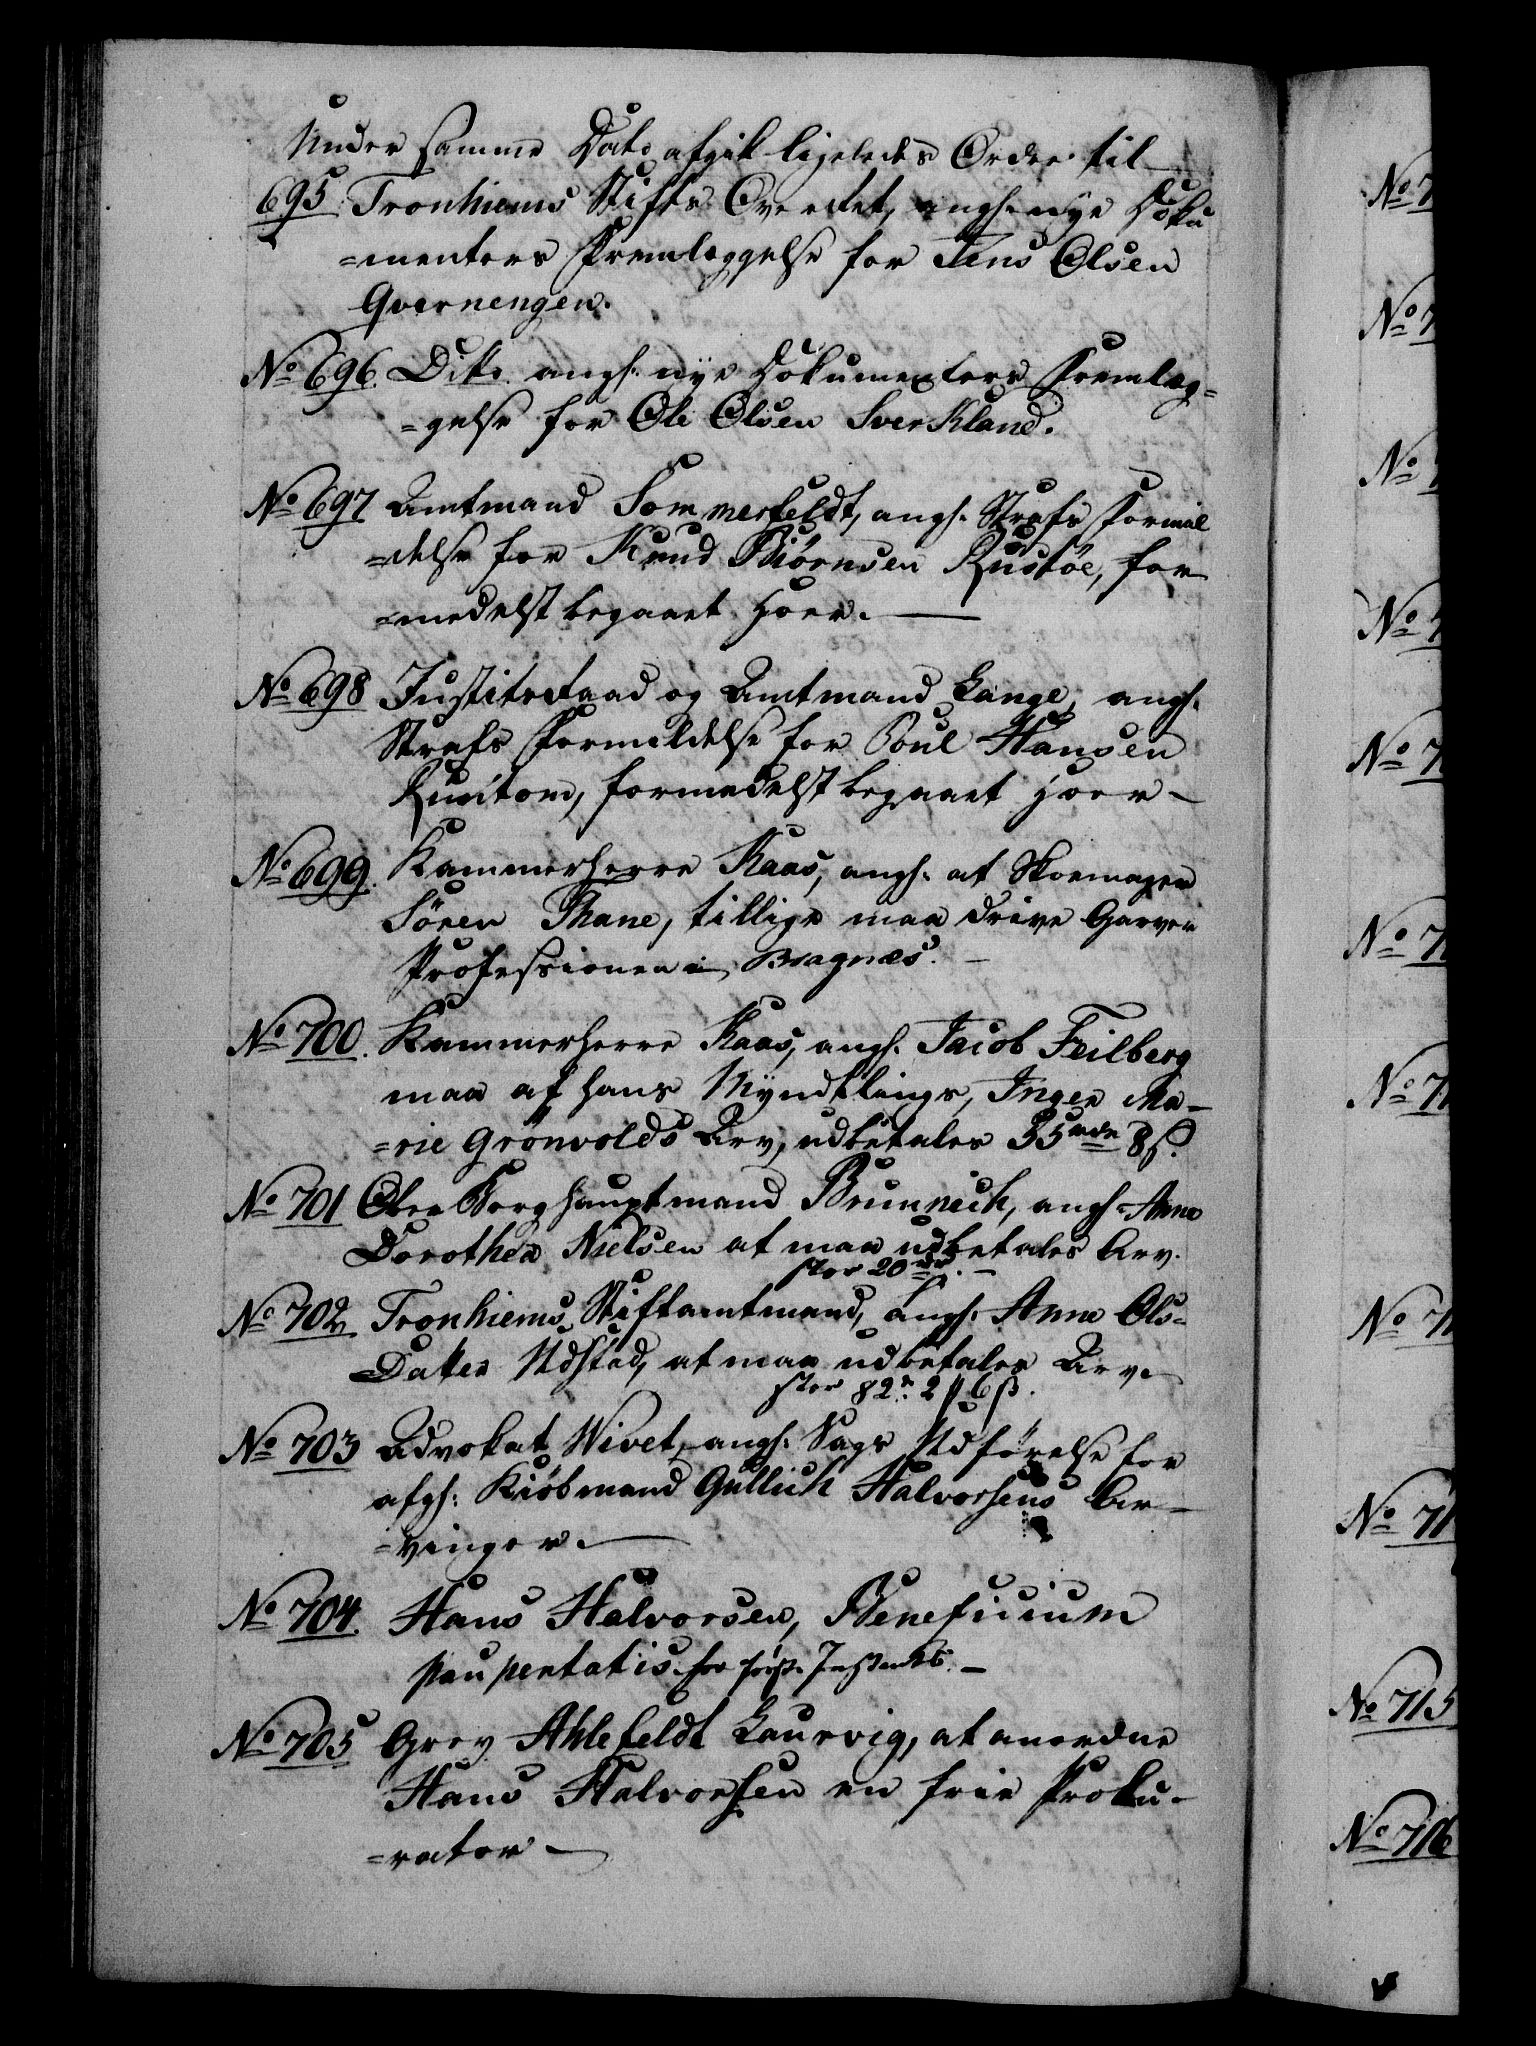 Under samme Dato afgik ligeledes Ordre til
695 Tronhiems Stifts Overret, angh. nye Doku
=menters Fremlæggelse for Jens Olsen
Qvernengen.
No 696. Dito angh. nye Dokumenters Fremlæg=
=gelse for Ole Olsen Sverkland.
No 697 Amtmand Sommerfeldt, angh. Strafs Formil
=delse for Knud Biørnsen Rustøe, for
=medelst begaaet Hoer.
No 698 Justitsraad og Amtmand Lange, angh.
Strafs Formildelse for Poul Hansen
formedelst begaaet Hoer –
No 699. Kammerherre Kaas, angh. at Skoemager
Søren Thane, tillige maa drive Garver
Professionen i Bragnæs. –
No 700. Kammerherre Kaas, angh. Jacob Feilberg
maa af hans Myndtlings, Inger Ma–
=rie Grønvolds Arv, udbetales 35 rdr 8 ß.
No 701 Ober Berghauptmand Brunnich, angh. Anne
Dorothea Nielsen at maa udbetales Arv.
stor 20 rdr. –
No 702 Tronhiems Stiftamtmand, angh. Anne Ols=
=Datter Udstad, at maa udbetales Arv
stor 82 r. 2 ℔ 6 ß.
No 703 Advokat Wivet, angh. Sags Udførelse for
afgh: Kiøbmand Gullich Halvorsens Ar–
=vinger.
No 704. Hans Halvorsen, Beneficium
paupertatis for første Instants. –
No 705 Grev Ahlefeldt Laurvig, at anordne
Hans Halvorsen en frie Proku–
=rator –
No 7
No 7
No 7
No 7
No 7
No 7
No 71
No 71
No 71
No 715
No 716